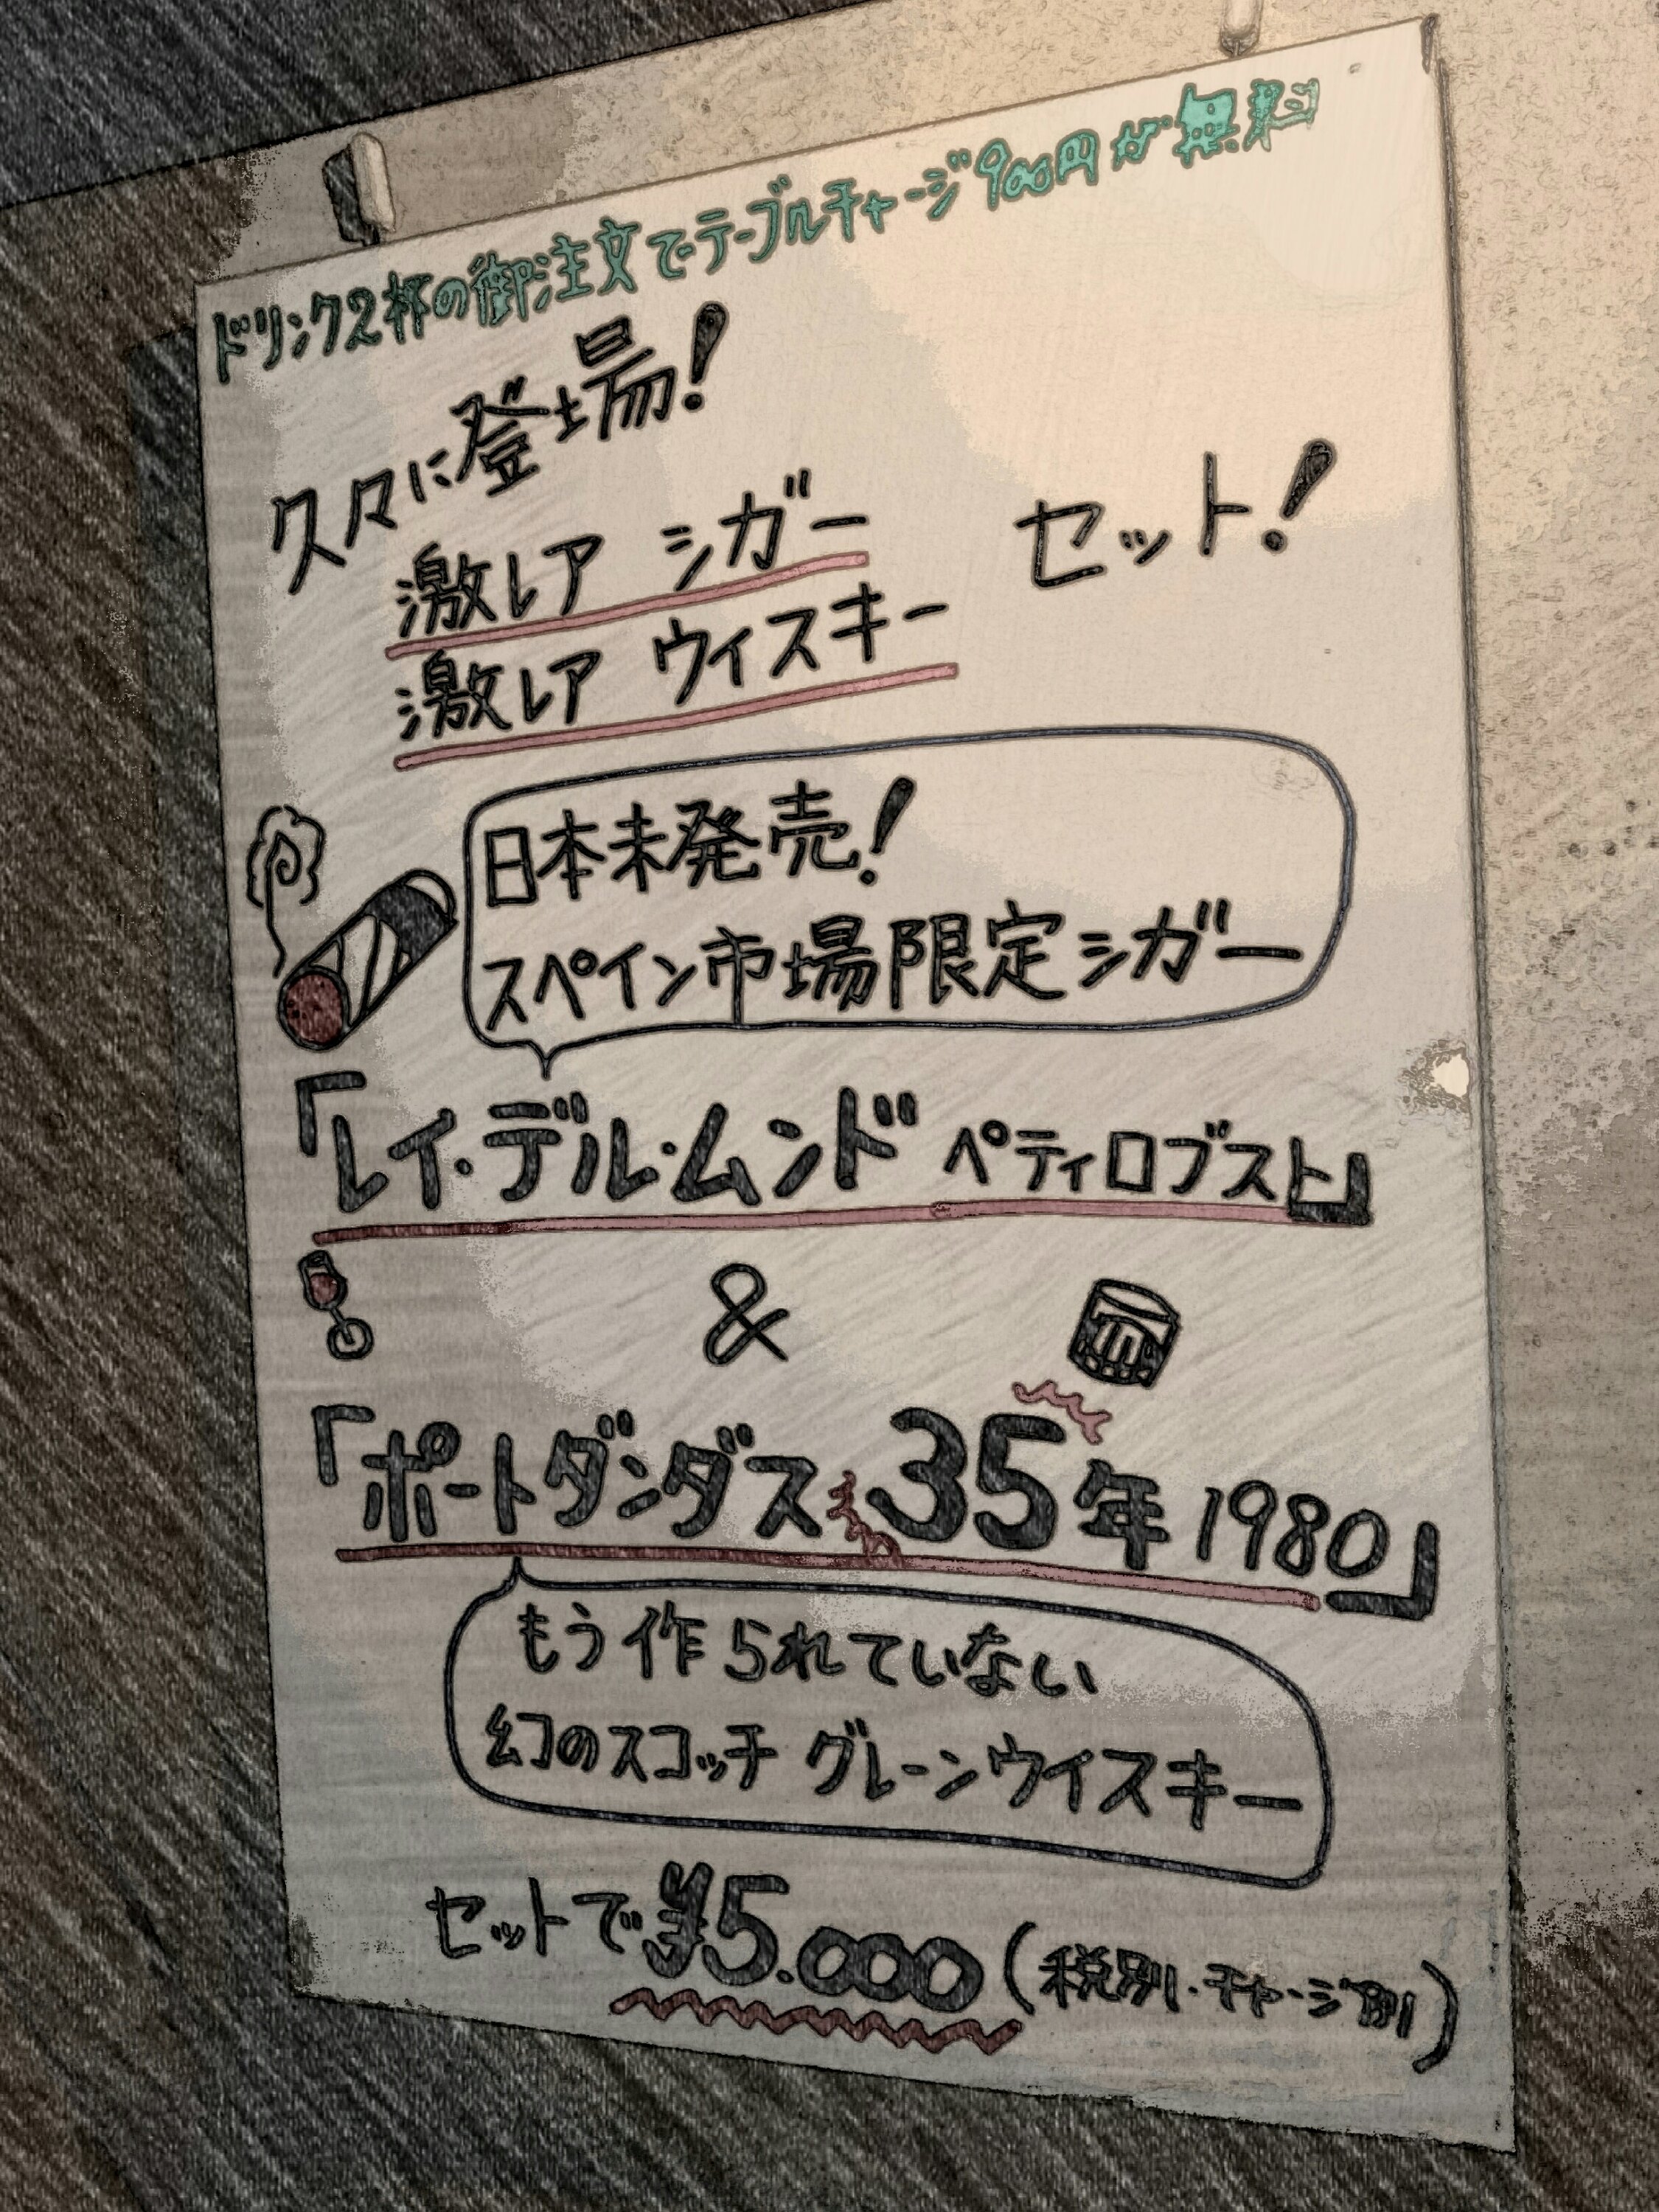 ドリンク2杯の御注文でテーブルチャージ900円が無料
久々に登場!
激レア シガー
激レア ウィスキー
セット!
日本未発売!
スペイン市場限定シガー
「レイ・デル・ムンド ペティロブスト」
&
「ポートダンダス 35年 1980」
もう作られていない
幻のスコッチ グレーンウイスキー
セットで¥5.000(税別・チャージ別)